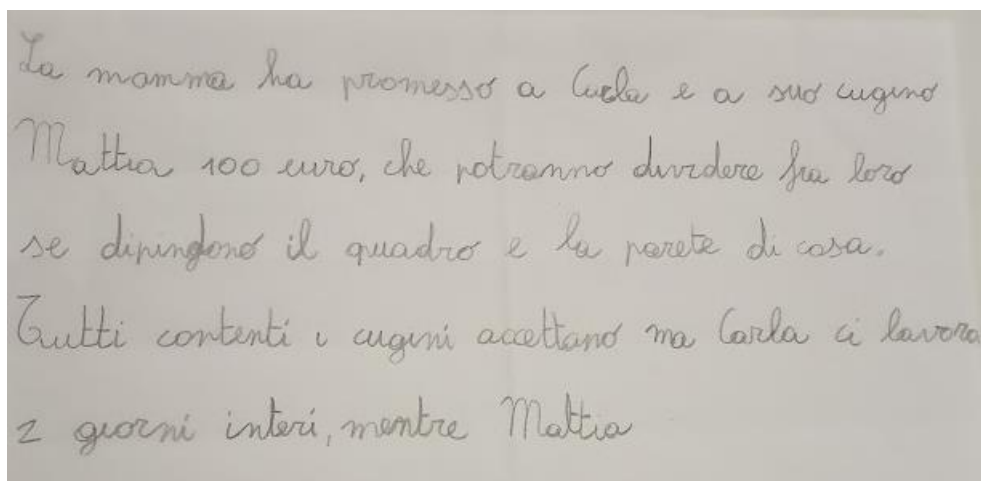 La mamma ha promesso a Carla e a suo cugino
Mattia 100 euro, che potranno dividere fra loro
se dipingono il quadro e la parete di casa.
Tutti contenti i cugini accettano ma Carla ci lavora
2 giorni interi, mentre Mattia